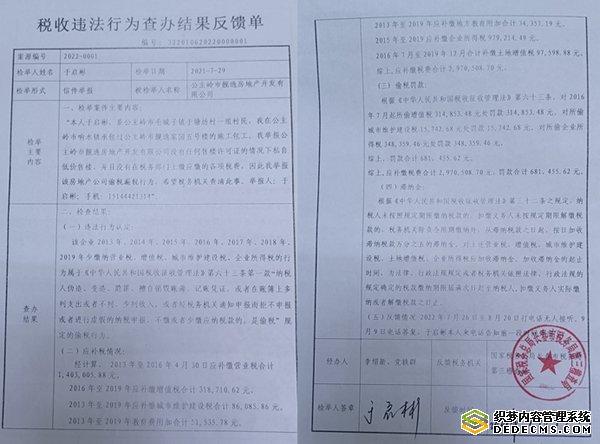 税收违法行为查办结果反馈单
编号：322010620220000001
案源编号
2022-0001
检举人姓名
于启彬
检举日期
2021-7-29
检举形式
信件举报
被检举人名称
公主岭市靓逸房地产开发有限公司
检举
主要
内容
一、检举案件主要内容：
“本人于启彬，
公主岭市响水镇承包过公主岭市靓逸家园五号楼的施工包工，我举报公
主岭市靓逸房地产开发有限公司没有任何售楼许可证的情况下私自
低价售楼，并且没有在税务部门上缴应缴的各项税费，因此我举报
该房地产公司偷税漏税行为，希望税务机关查清此事。举报人：于
启彬；手机：15144421314”
查办
结果
二、检查结果：
（一）违法行为认定：
该企业2013年、2014年、2015年、2016年、2017年、2018年、
2019年少缴纳营业税、增值税、城市维护建设税、企业所得税的行
为属于《中华人民共和国税收征收管理法》第六十三条第一款“纳税
人伪造、变造、隐匿、擅自销毁账簿、记账凭证，或者在账簿上多
列支出或者不列、少列收入，或者经税务机关通知申报而拒不申报
或者进行虚假的纳税申报，不缴或者少缴应纳税款的，是偷税”规
定的偷税行为。
（二）应补税情况：
经计算，2013年至2016年4月30日应补缴营业税合计
1,403,005.88元
2016年至2019年应补缴增值税合计318,710.62元
2013年至2019年应补缴城市维护建设税合计86,085.86元
2013年至2019年教育费附加合计51,535.78元
2013年至2019年应补缴地方教育附加合计34,357.19元
2015年至2019年应补缴企业所得税979,214.49元
2016年7月至2019年12月合计补缴土地增值税97,598.88元
综上，应补缴税费合计2,970,508.70元
（三）偷税罚款：
根据《中华人民共和国税收征收管理法》第六十三条，对2016
年7月起所偷增值税314,853.48元罚款314,853.48元，对所偷
城市维护建设税15,742.68元罚款15,742.68元，对所偷企业所
得税348,359.46元罚款348,359.46元。
综上，罚款合计681,455.62元。
综上，应补缴税款合计2,970,508.70元，罚款合计681,455.62元。
（四）滞纳金：
根据《中华人民共和国税收征收管理法》第三十二条之规定，纳
税人未按照规定期限缴纳税款的，扣缴义务人未按照规定期限解缴税
款的，税务机关除责令限期缴纳外，从滞纳税款之日起，按日加收
滞纳税款万分之五的滞纳金。对上述营业税、增值税、城市维护建
设税、土地增值税、企业所得税应加收滞纳金。加收滞纳金的起止
时间，为法律、行政法规规定或者税务机关依照法律、行政法规的
规定确定的税款缴纳期限届满次日起至纳税人、扣缴义务人实际缴
纳或者解缴税款之日止。
反馈情况：2022年7月26日至8月20日打电话无人接听，
9月9日电话答复，于启彬本人来电话告知
经办人
李熠新、党轶群
反馈税务机关
国家税务总局长春市税务局第三稽查局
检举人签章
于启彬